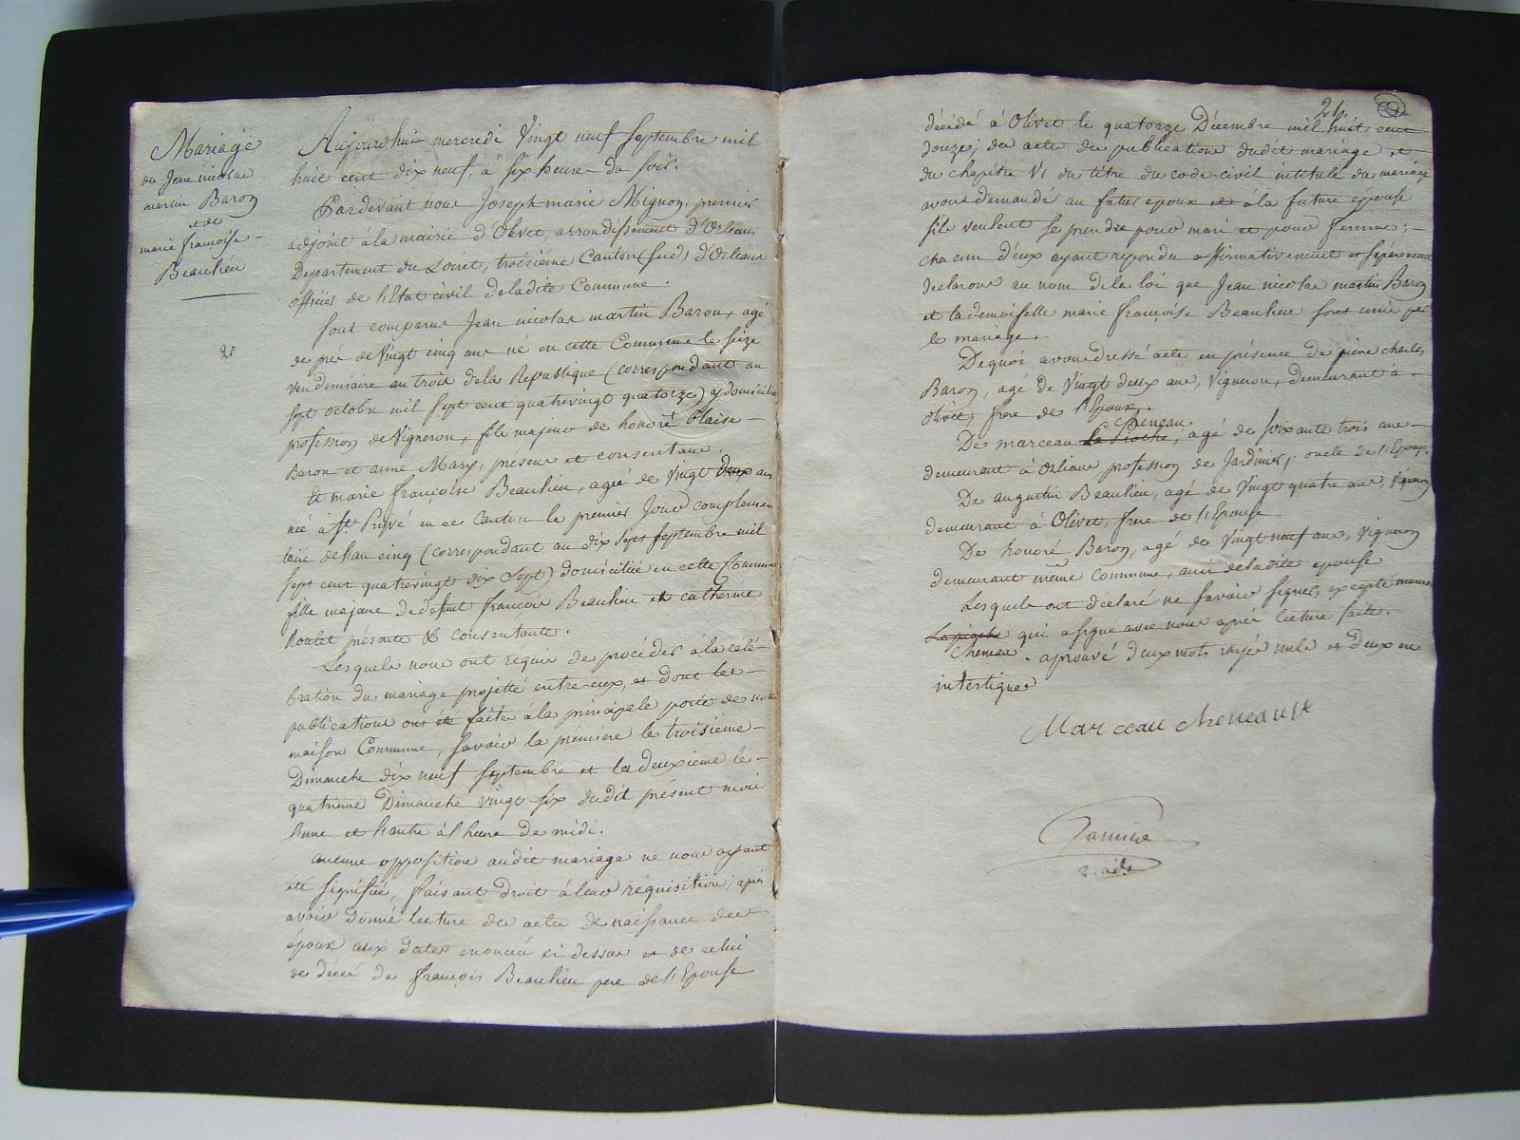 Mariage
de Jean nicolas
martin Baron
et de
marie françoise
Beaulieu
Aujourd'hui mercredi Vingt neuf Septembre mil
huit cent dix neuf, à six heures du soir.
Pardevant nous Joseph marie Mignon, premier
adjoint à la mairie d'Olivet, arrondissement d'Orleans
Departement du Loiret, troisième Canton (sud) d'Orleans
officier de l'Etat civil deladite Commune.
Sont comparus Jean nicolas martin Baron, agé
de près de Vingt cinq ans né en cette Commune le seize
vendemiaire an trois dela Republique (correspondant au
sept octobre mil sept cent quatrevingt quatorze) y domicilié
profession de Vigneron, fils majeur de honoré Blaise
Baron et anne Mary, présens et consentans.
Et marie françoise Beaulieu, agée de Vingt deux ans
née à St Privé en ce Canton le premier Jour complemen
taire de l'an cinq (correspondant au dix sept septembre mil
sept cent quatrevingt dix sept) domiciliée en cette Commune
fille majeure de defunt françois Beaulieu et catherine
Poulet présente & consentante.
Lesquels nous ont requis de procéder à la célé-
bration du mariage projetté entre eux, et dont les
publications ont été faites à la principale porte de notre
maison Commune, savoir la premiere le troisieme
Dimanche dix neuf septembre et la deuxieme le
quatrieme Dimanche vingt six dudit présent mois
l'une et l'autre à l'heure de midi.
aucune opposition audit mariage ne nous ayant
été signifiée, faisant droit à leur réquisition; après
avoir donné lecture des actes de naissance des
époux aux dates enoncées ci dessus et de celui
de décès de françois Beaulieu pere de l'Epouse
24
décédé à Olivet le quatorze Décembre mil huit cent
douze; des actes de publications dudit mariage et
du chapitre VI du titre du code civil intitulé du mariage
avons demandé au futur epoux et à la future épouse
s'ils veulent se prendre pour mari et pour femme;
chacun d'eux ayant repondu affirmativement et séparement
declarons au nom de la loi que Jean nicolas martin Baron
et la demoiselle marie françoise Beaulieu sont unis par
le mariage.
De quoi avons dressé acte en présence de pierre charles
Baron, agé de Vingt deux ans, Vigneron, demeurant à
olivet, frere de l'Epoux.
Cheneau
De marceau , agé de soixante trois ans
demeurant à Orléans profession de Jardinier, oncle de l'Epoux.
De augustin Beaulieu, agé de Vingt quatre ans, Vigneron
demeurant à Olivet, frere de l'Epouse
De honoré Baron, agé de Vingt neuf ans, Vigneron
demeurant même commune, ami de ladite epouse
Lesquels ont déclaré ne savoir signer, excepté marceau
qui a signé avec nous après lecture faite.
Cheneau. aprouvé deux mots rayés nuls et deux en
interlignes
Marceau cheneault